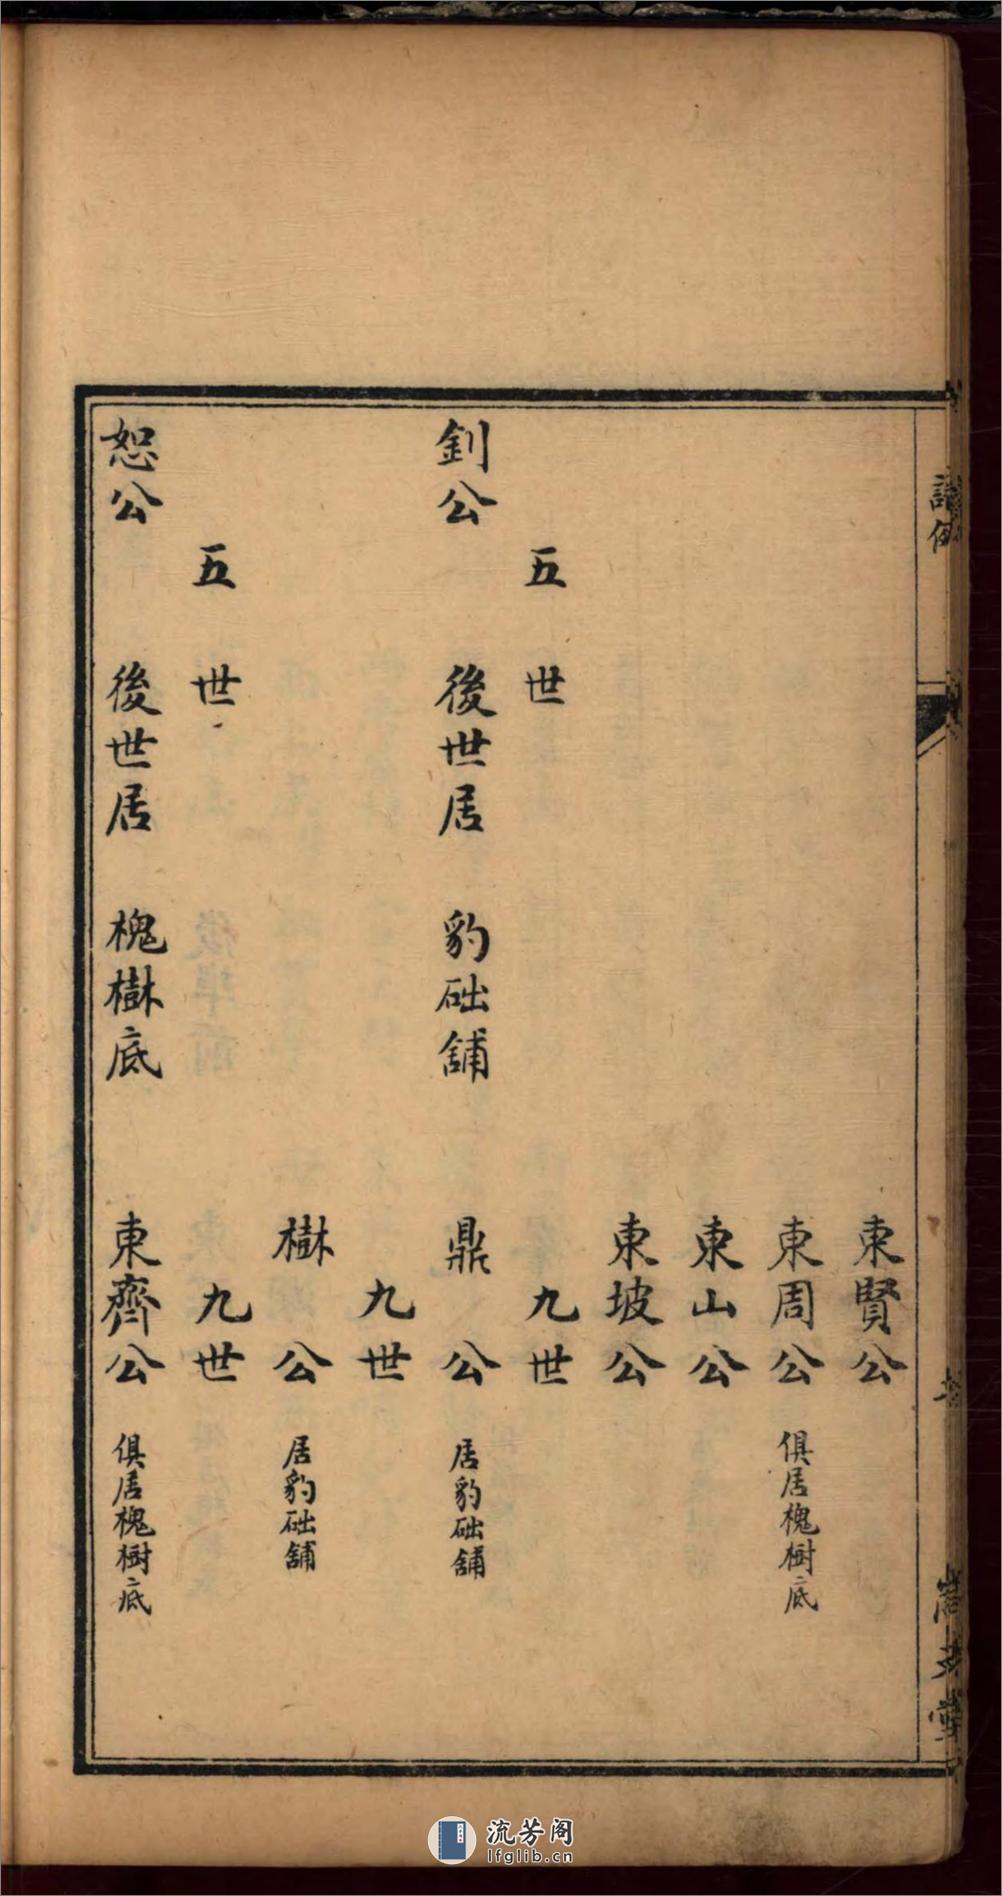 東賢公
東周公 俱居槐樹底
東山公
東坡公
五世 九世
釗公 後世居 豹础舖 鼎公 居豹础舖
九世
樹公 居豹础舖
五世 九世
恕公 後世居 槐樹底 東齊公 俱居槐樹底
流芳阁
lfglib.cn